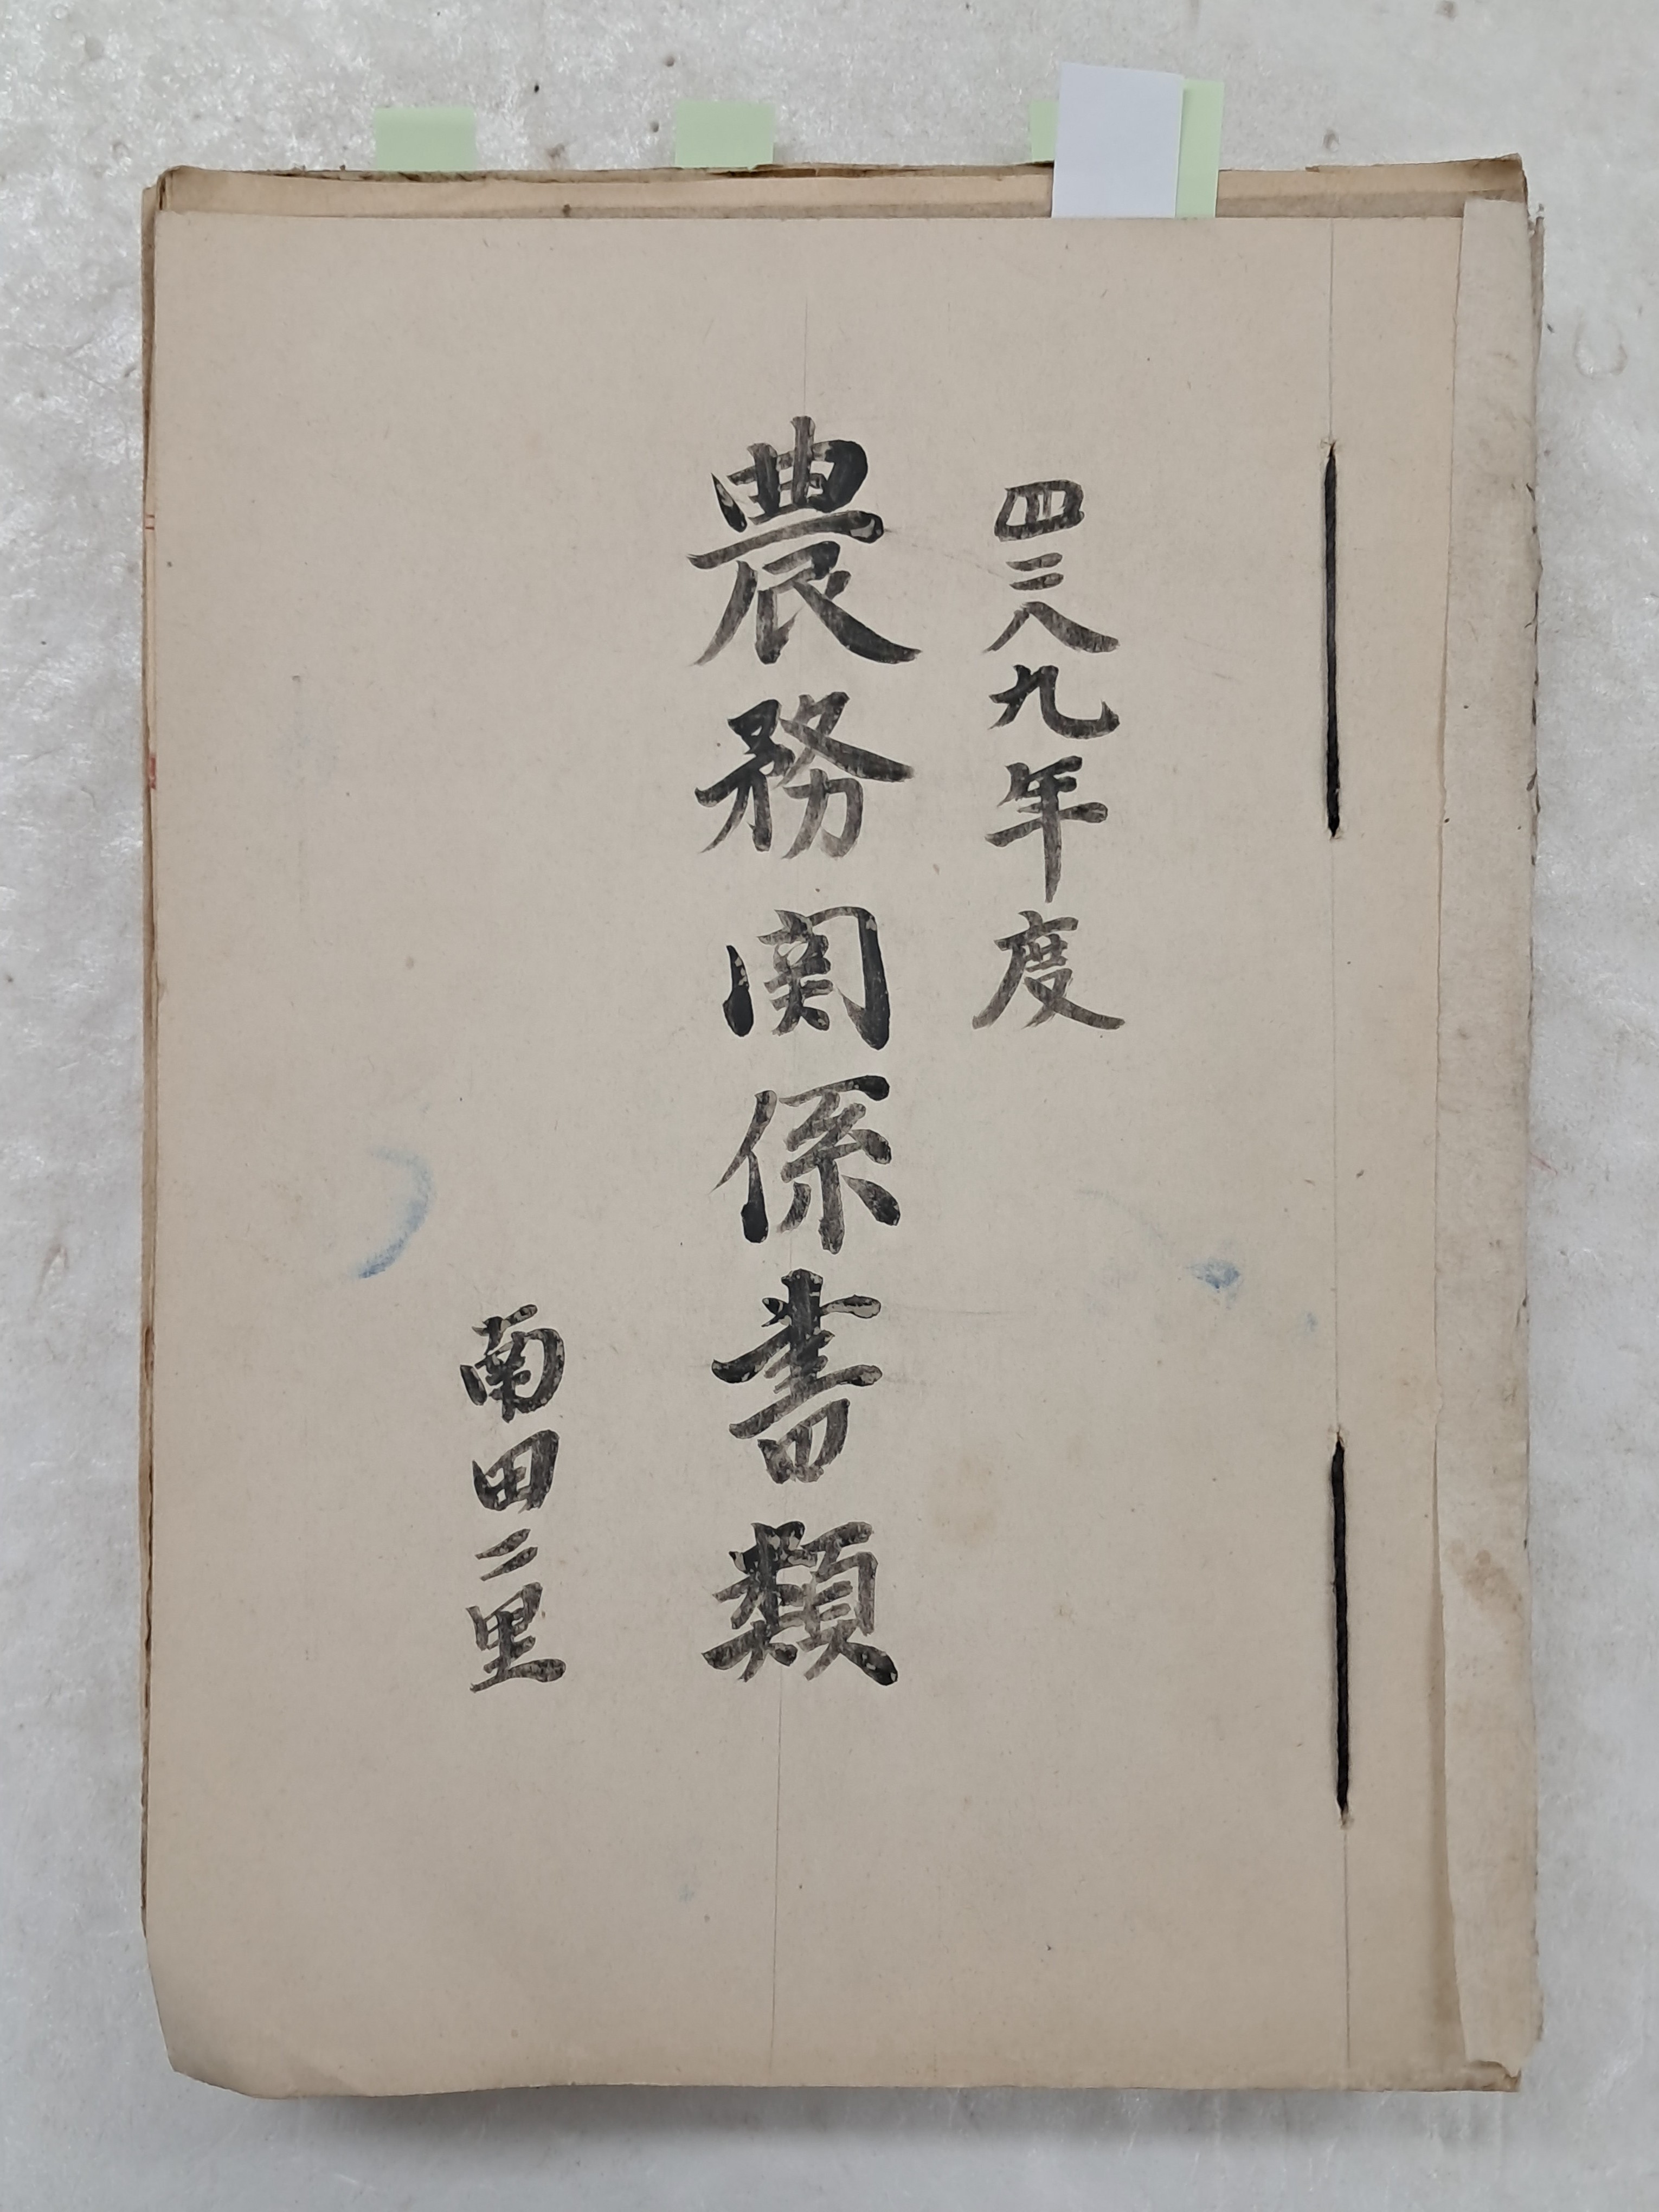 四二八九年度
農務関係書類
南田二里